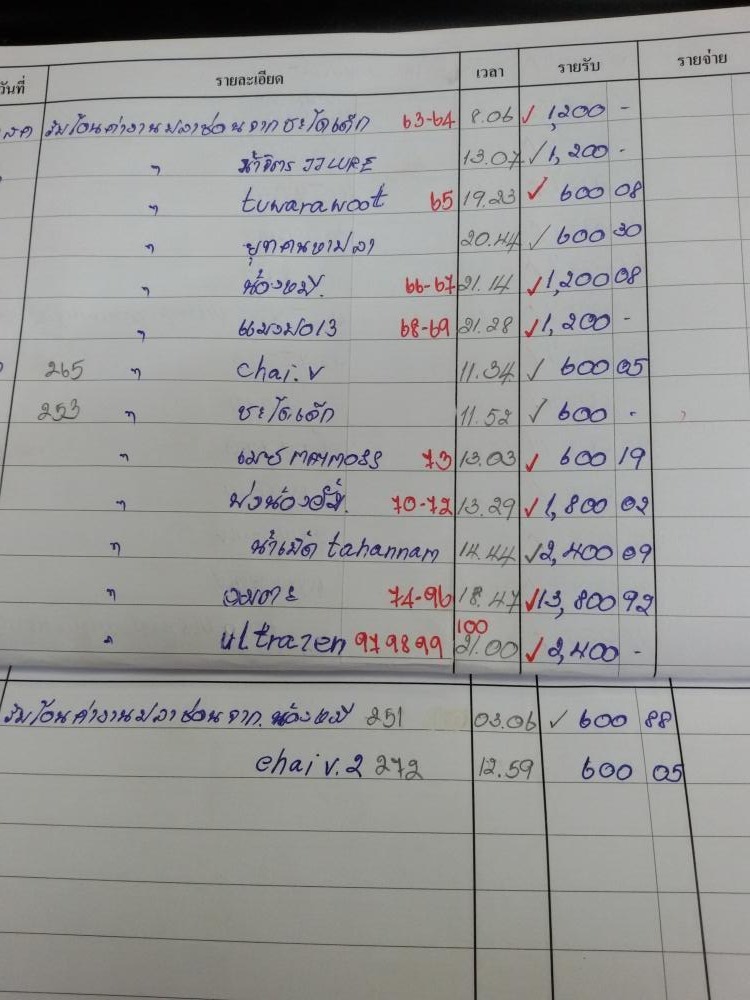 วันที่ รายละเอียด เวลา รายรับ รายจ่าย
รับโอนค่างานปลาช่อนจาก ชะโดเด็ก 63-64 8.06 ✓ 1,200 -
" น้ำจิตร JJLURE 13.07 ✓ 1,200 -
" tuwarawoot 65 19.23 ✓ 600 08
" ยุทคนหาปลา 20.44 ✓ 600 30
" น้องหมี. 66-67 21.14 ✓ 1,200 08
" แมงมอ13 68-69 21.28 ✓ 1,200 -
265 " chai.v 11.34 ✓ 600 05
253 " ชะโดเด็ก 11.52 ✓ 600 -
" 73 13.03 ✓ 600 19
" 70-72 13.29 ✓ 1,800 02
" tahannam 14.44 ✓ 2,400 09
" 74-96 18.47 ✓ 13,800 92
" ultrazen 97 98 99 100 21.00 ✓ 2,400 -
รับโอนค่างานปลาช่อนจาก. น้องหมี 251 03.06 ✓ 600 88
chai v.2 272 12.59 600 05